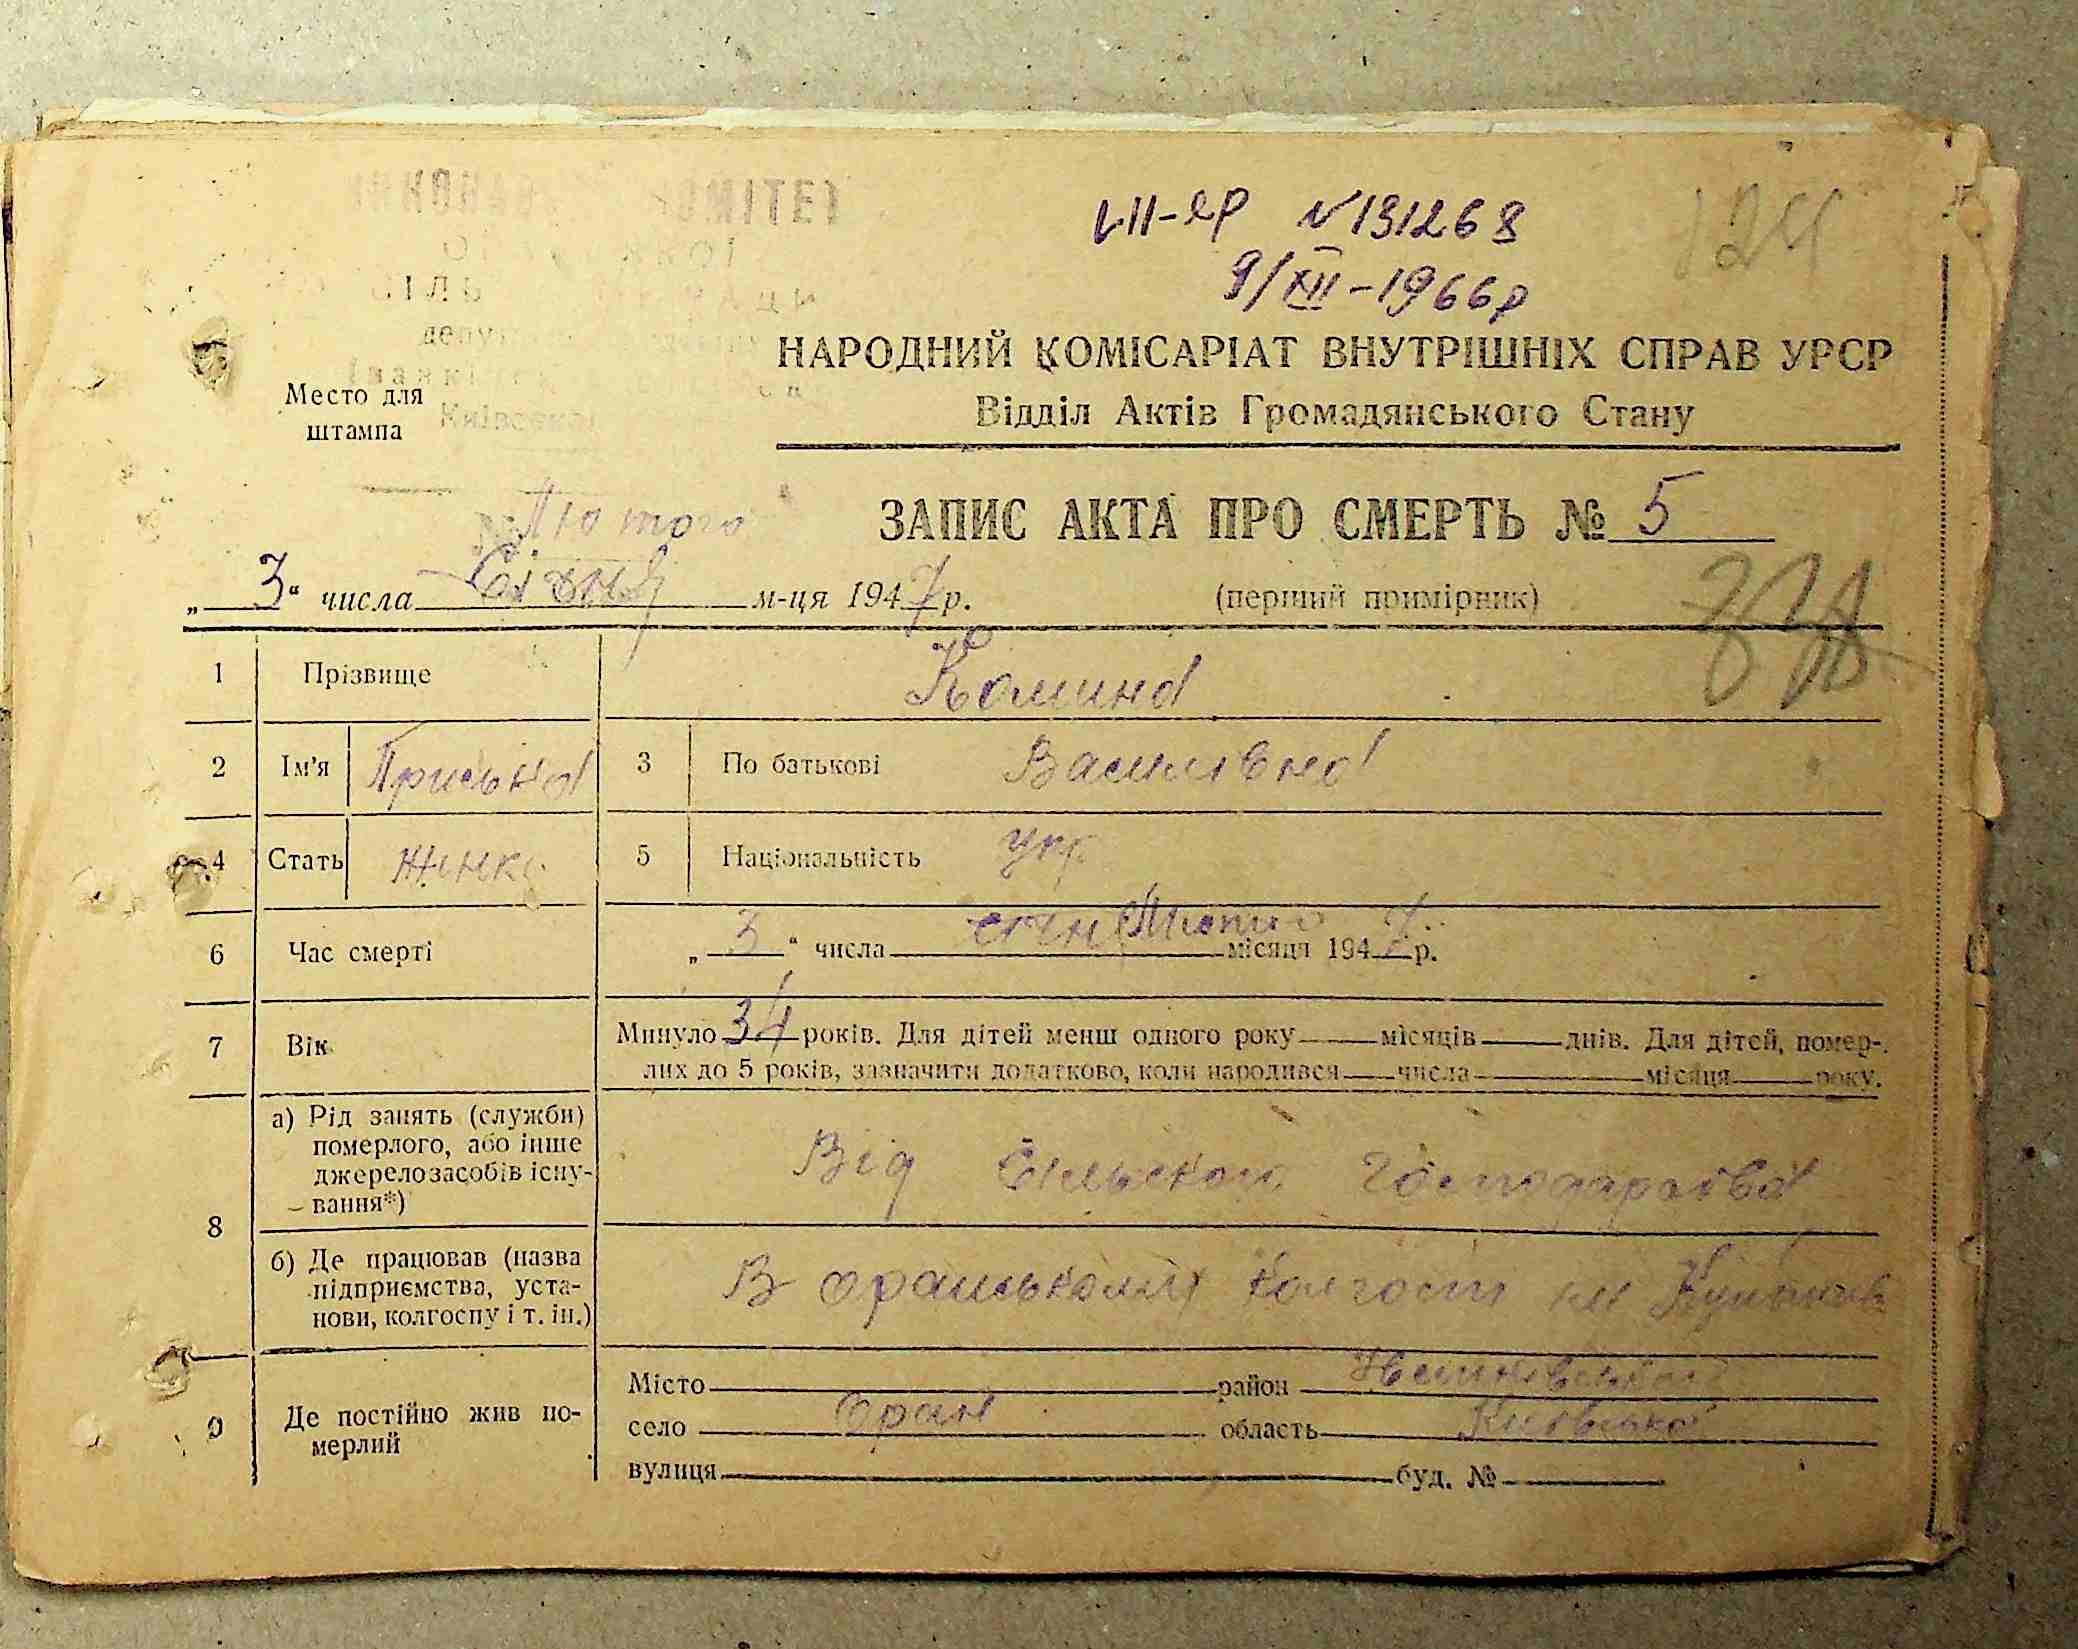 VII-ЯР №131268
9/XII-1966р
НАРОДНИЙ КОМІСАРІАТ ВНУТРІШНІХ СПРАВ УРСР
Відділ Актів Громадянського Стану
Место для
штампа
ЗАПИС АКТА ПРО СМЕРТЬ № 5
Лютого
„3“ числа Січня м-ця 1947 р.
(перший примірник)
1 Прізвище Комина
2 Ім'я Приська 3 По батькові Василівна
4 Стать жінка 5 Національність укр.
6 Час смерті „3“ числа січн Лютого місяця 1947 р.
7 Вік Минуло 34 років. Для дітей менш одного року місяців днів. Для дітей, помер-
лих до 5 років, зазначити додатково, коли народився числа місяця року.
8 а) Рід занять (служби)
померлого, або інше
джерело засобів існу-
вання*)
Від господарства
б) Де працював (назва
підприємства, уста-
нови, колгоспу і т. ін.)
В оранському колгоспі ім
9 Де постійно жив по-
мерлий
Місто район
село Оране область Київська
вулиця буд. №